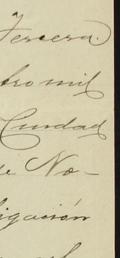 Tercera
tro mil
Ciudad
de No-
ligación